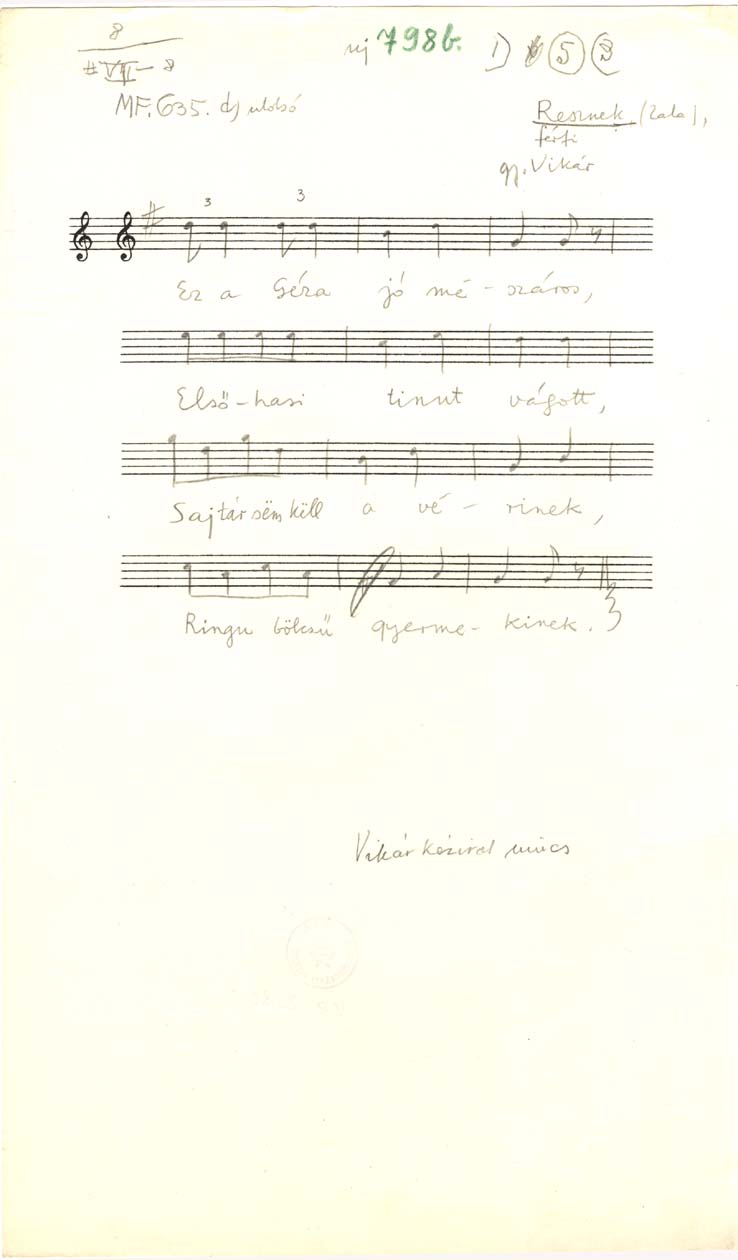 8
új 798b. I) 5 3
# VII – 8
MF. 635. d) utolsó
Resznek (Zala),
férfi
gy. Vikár
3 3
Ez a Géza jó mé - száros,
Első-hasi tinut vágott,
Sajtár sëm këll a vé - rinek,
Ringu bölcsü gyerme - kinek.
Vikár kézirat nincs